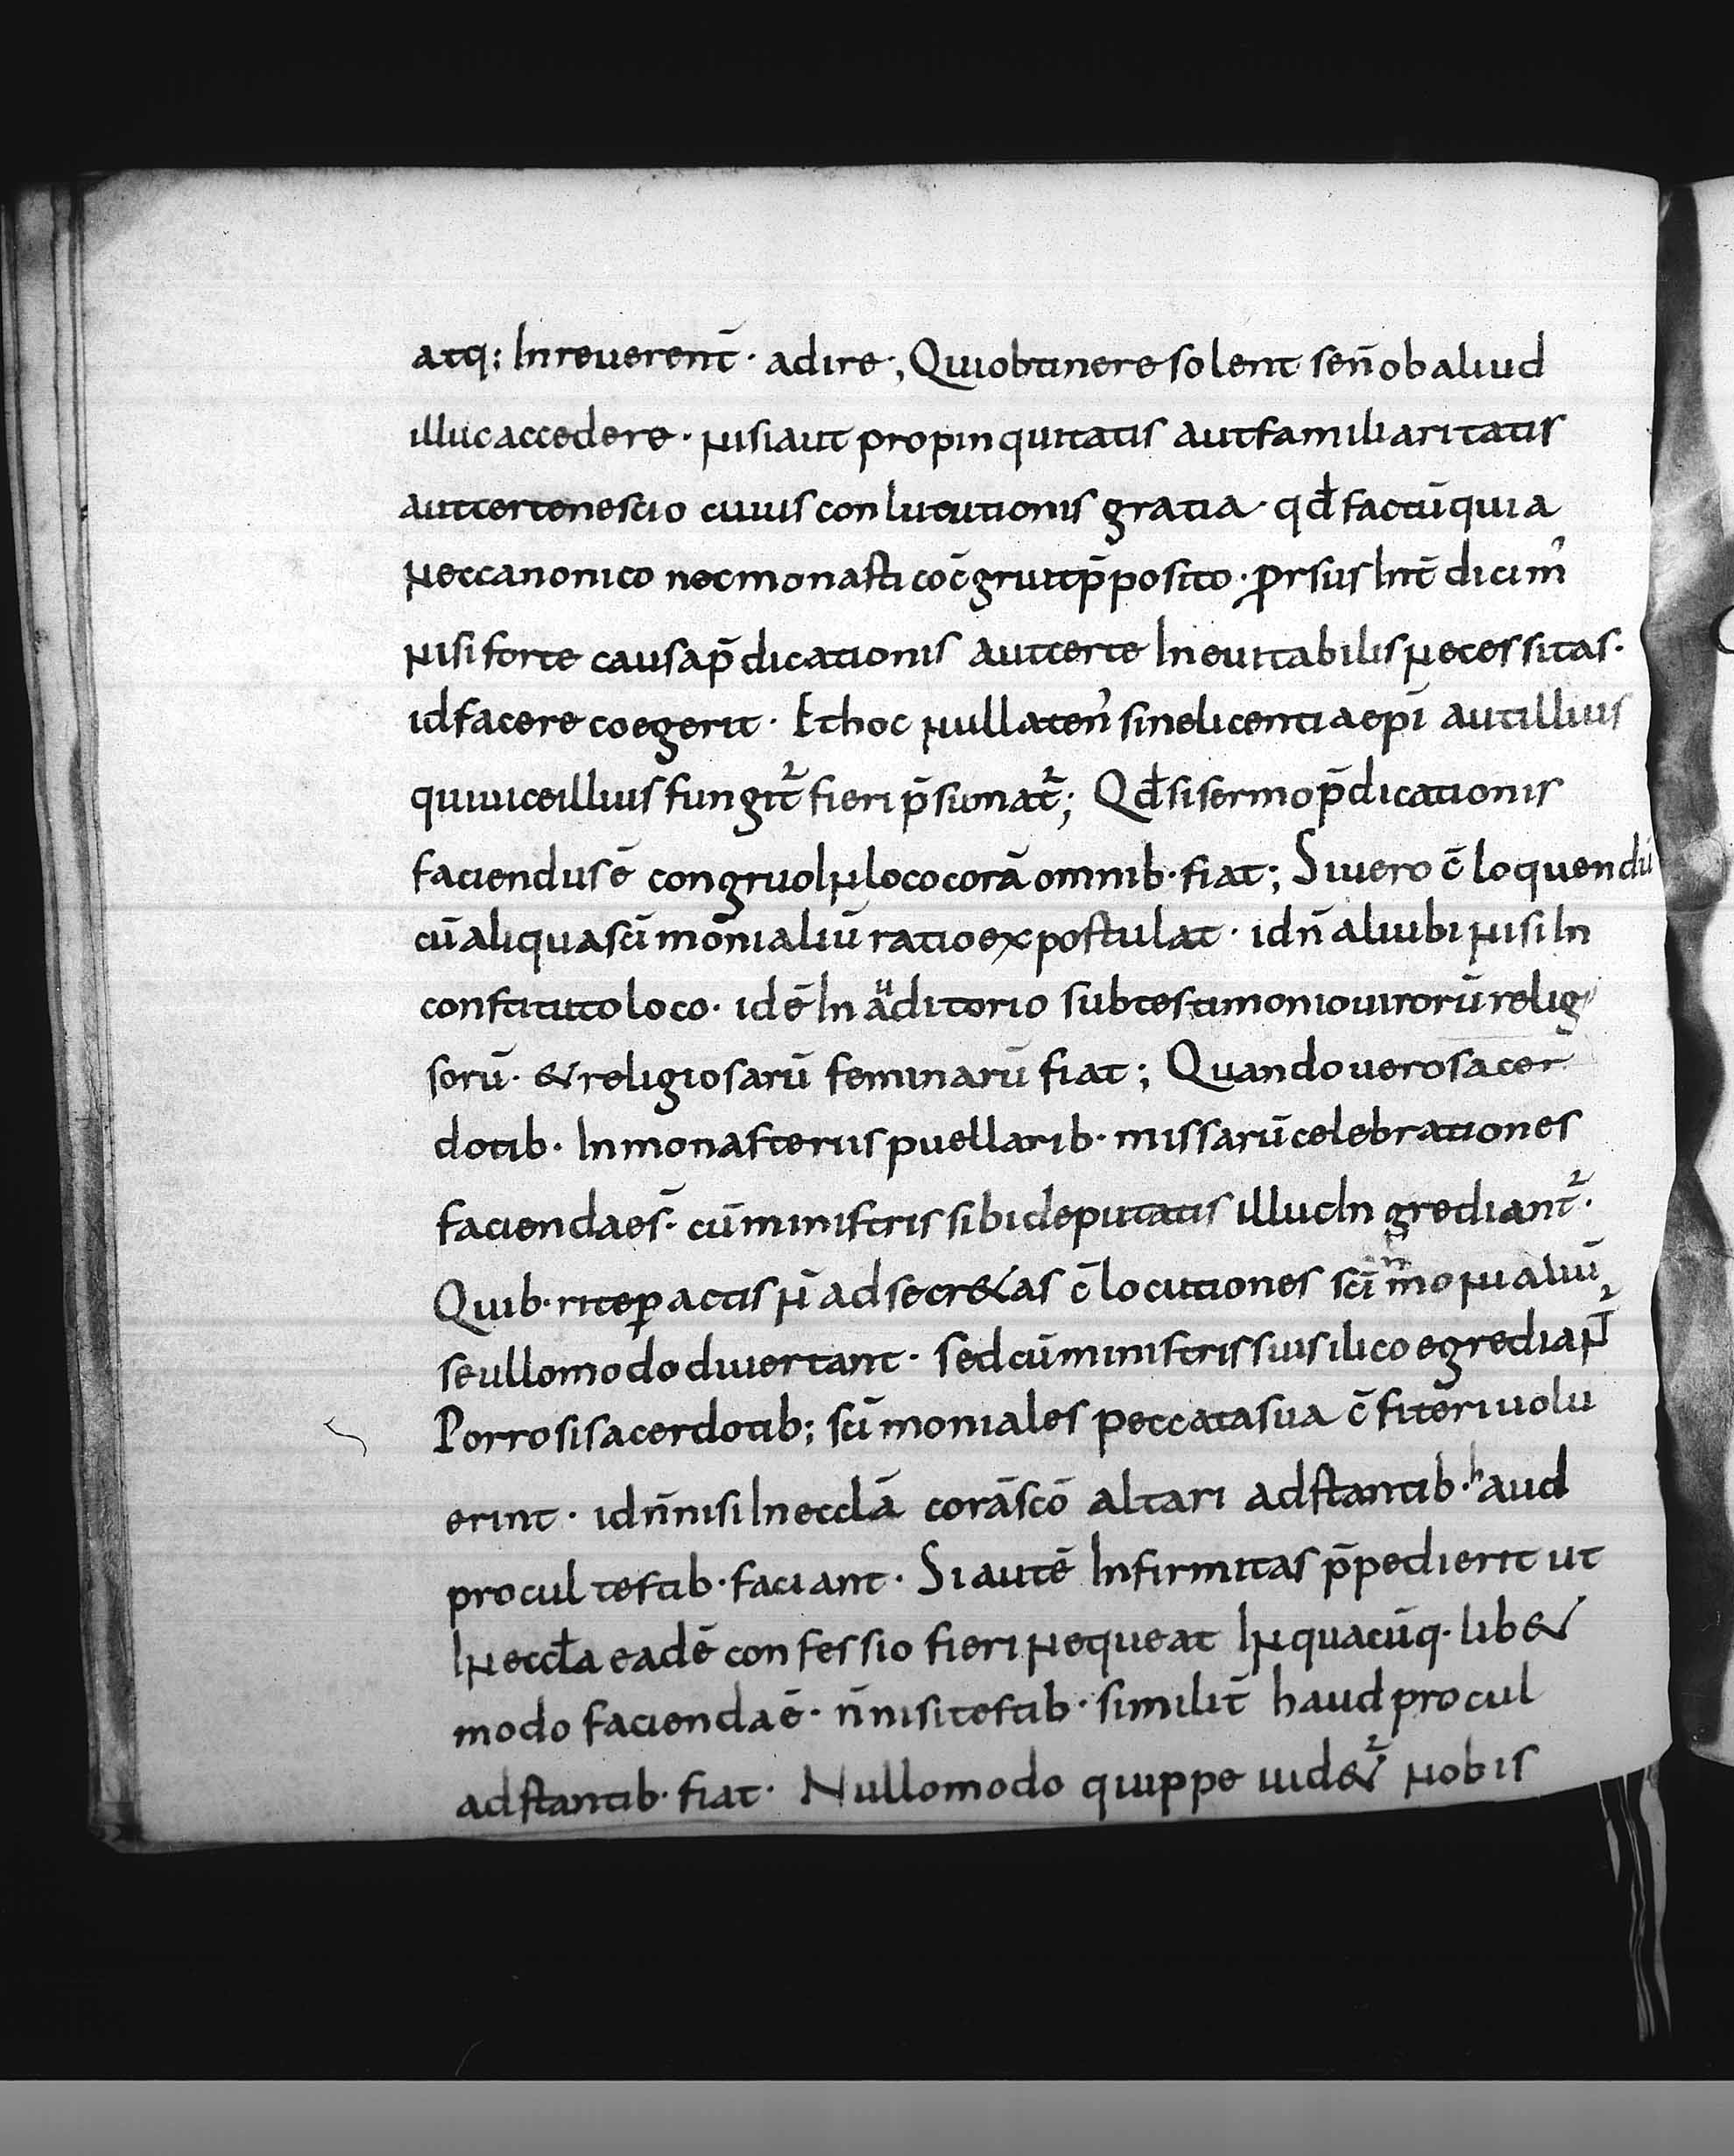 atq: Inreuerent̄· adire·, Quiobtinere solent señ ob aliud
illuc accedere· nisi aut propinquitatis aut familiaritatis
aut certe nescio cuius conlucutionis gratia· qđ factū quia
nec canonico nec monastico c̄gruit p̄posito· ꝓrsus Int̄ dicim᾽
nisi forte causa p̄dicationis aut certe Ineuitabilis necessitas·
id facere coegerit· Et hoc nullaten᾽ sine licentia epī aut illius
qui uice illius fungit̄² fieri p̄sumat̄²; Qđ si sermo p̄dicationis
faciendus ē congruo In loco corā omnib· fiat; Si uero c̄loquendū
cū aliqua sc̄imōnialiū ratio expostulat· id n̄ aliubi nisi In
constituto loco· idē In auditorio sub testimonio uirorū relig
sorū· & religiosarū feminarū fiat; Quando uero sacer
dotib· In monasteriis puellarib· missarū celebrationes
facienda es̄· cū ministris sibi deputatis illuc In grediant̄²·
Quib· rite ꝑactis n̄ ad secr&as c̄locutiones sc̄imonialiū
se ullo modo diuertant· sed cū ministris suis ilico egrediant̄²
Porro si sacerdotib; sc̄imoniales peccata sua c̄fiteri uolu
erint· id n̄ nisi In eccl̄ā corā sc̄ō altari adstantib· haud
procul testib· faciant· Si autē Infirmitas p̄pedierit ut
In eccl̄a eadē confessio fieri nequeat In quacūq· lib&
modo facienda ē· n̄ nisi testib· similit̄ haud procul
adstantib· fiat· Nullo modo quippe uid&² nobis